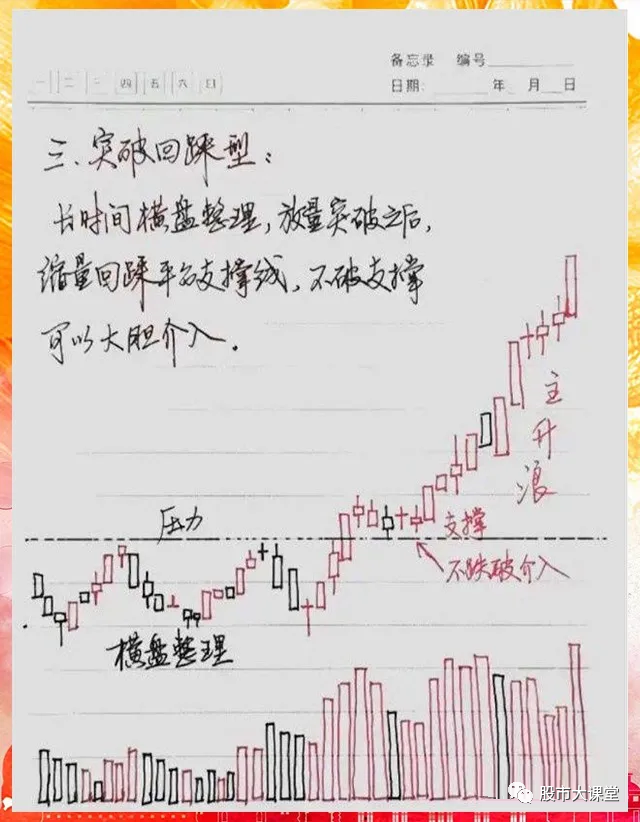 备忘录 编号
一 二 三 四 五 六 日
日期: 年 月 日
三、突破回踩型:
长时间横盘整理,放量突破之后,
缩量回踩平台支撑线,不破支撑
可以大胆介入.
主升浪
压力
支撑
不跌破介入
横盘整理
股市大课堂